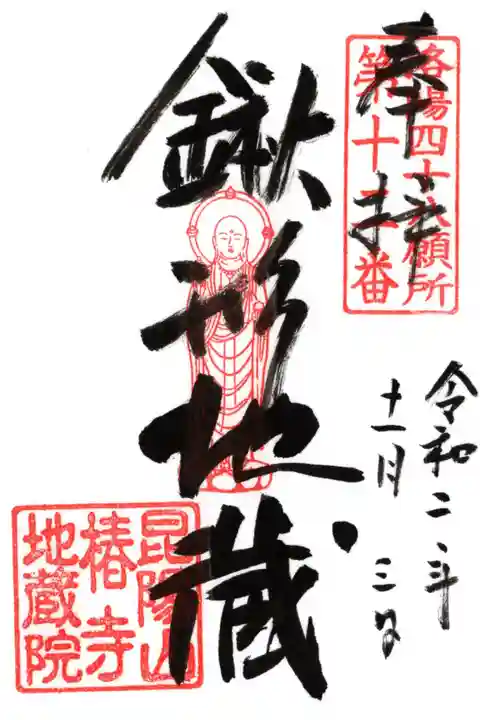 奉拝
洛陽四十八願所
第十二番
鍬形地蔵
令和二年
十一月三日
昆陽山
椿寺
地蔵院